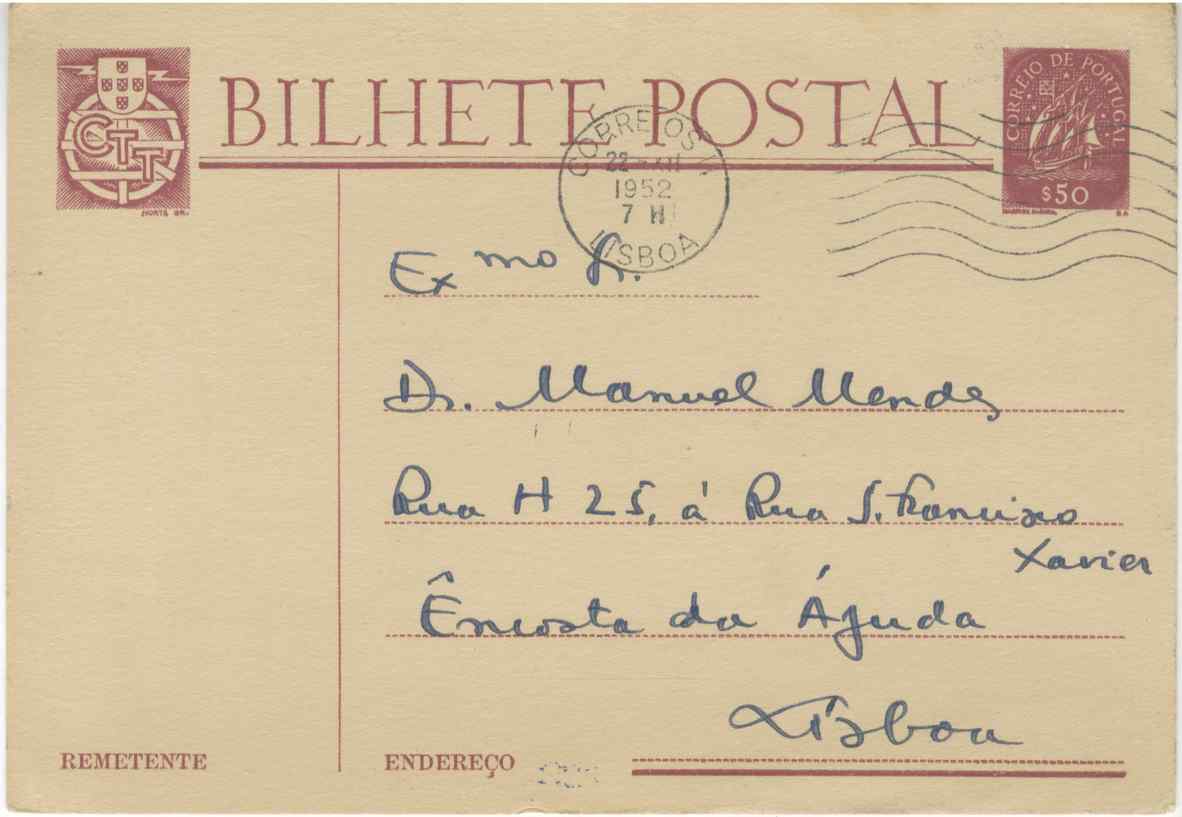 BILHETE POSTAL
CTT
NORTE GR.
CORREIO DE PORTUGAL
$50
CORREIOS
22 XII
1952
7 H
LISBOA
Ex mo Sr.
Dr. Manuel Mendes
Rua H 25, á Rua S. Francisco
Xavier
Êncosta da Ájuda
Lisboa
REMETENTE
ENDEREÇO